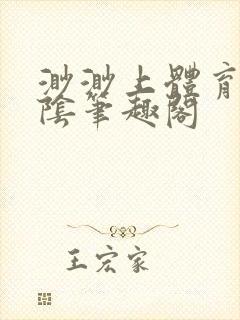 渺渺上體育
陰筆趣閣
王宏家